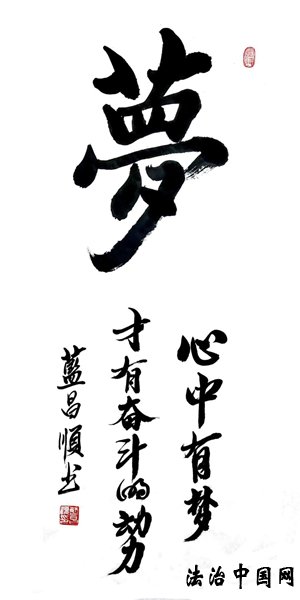 夢
心中有梦
才有奋斗的動力
藍昌順书
法治中国网